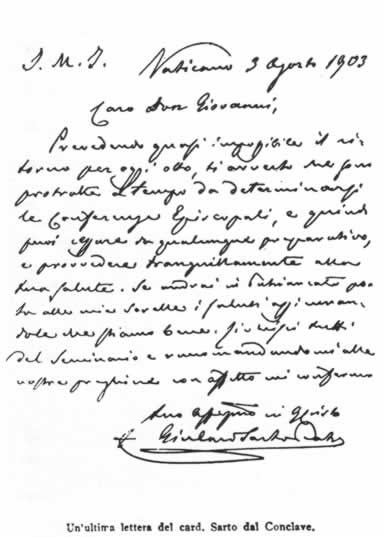 J. M. J. Vaticano 3 Agosto 1903
Caro Don Giovanni,
Prevedendo quasi impossibile il ri-
torno per oggi otto, ti avverto che sono
protratte a tempo da determinarsi
le Conferenze Episcopali, e quindi
puoi cessare da qualunque preparativo,
e provvedere tranquillamente alla
tua salute. Se andrai in Patriarcato por-
ta alle mie sorelle i saluti assicuran-
dole che stiamo bene. tutti
del Seminario e raccomandandomi alle
vostre preghiere con affetto mi confermo
tuo in
Giuseppe Sarto
Un'ultima lettera del card. Sarto dal Conclave.